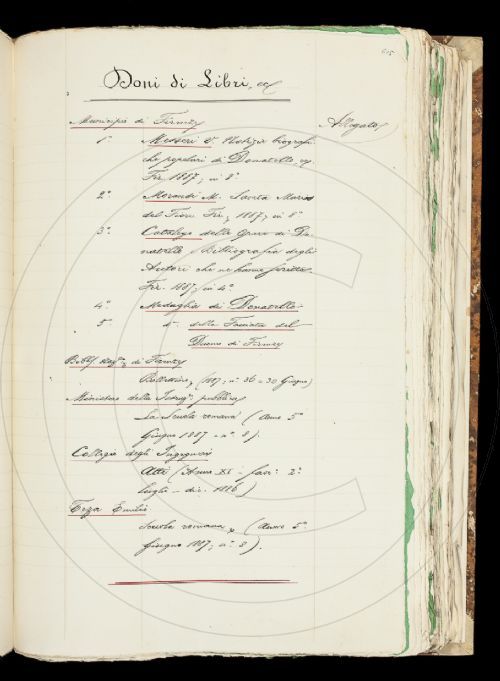 605
Doni di Libri, ecc
Municipio di Firenze
Allegato
1° Messeri V. Notizie biografi-
che popolari di Donatello, ecc
Fir. 1887, in 8°
2° Morandi M. Santa Maria
del Fiore Fir., 1887, in 8°
3° Catalogo delle Opere di Do-
natello e Bibliografia degli
Autori che ne hanno scritto
Fir. 1887 in 4°
4° Medaglia di Donatello
5° d° della Facciata del
Duomo di Firenze
Bibl. Naz. di Firenze
Bollettino, (1887, n° 36 = 30 Giugno)
Ministero della Istruz. pubblica
La Scuola romana (Anno 5°
Giugno 1887 - n° 8).
Collegio degli Ingegneri
Atti (Anno XI - fasc: 2°
luglio - dic. 1886)
Teza Emilio
Scuola romana (Anno 5°
Giugno 1887, n° 8).